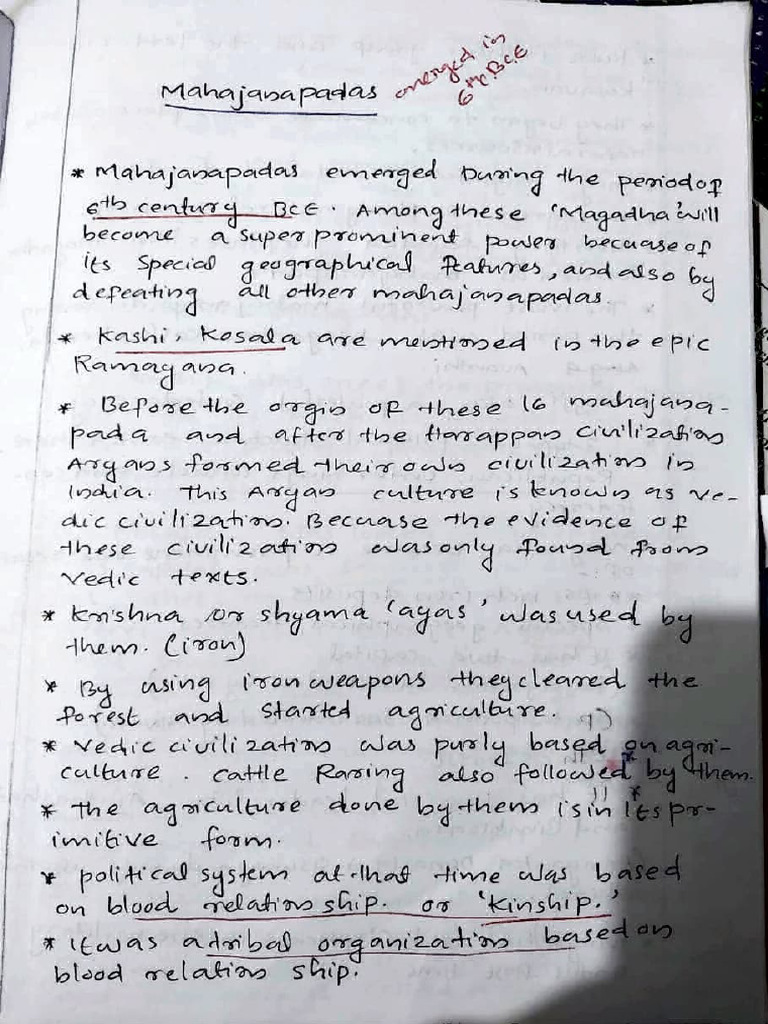 Mahajanapadas emerged in
6th BCE
* Mahajanapadas emerged During the period of
6th century BCE. Among these 'Magadha' will
become a super prominent power becuase of
its Special geographical features, and also by
defeating all other mahajanapadas.
* Kashi, Kosala are mentioned in the epic
Ramayana.
* Before the orgin of these 16 mahajana-
pada and after the Harappan civilization
Aryans formed their own civilization in
India. This Aryan culture is known as ve-
dic civilization. Becuase the evidence of
these civilization was only found from
vedic texts.
* Krishna or shyama 'ayas' was used by
them. (iron)
* By using iron weapons they cleared the
forest and started agriculture.
* Vedic civilization was purly based on agri-
culture. cattle Raring also followed by them.
* the agriculture done by them is in its pr-
imitive form.
* political system at that time was based
on blood relation ship. or 'Kinship.'
* it was a tribal organization based on
blood relation ship.